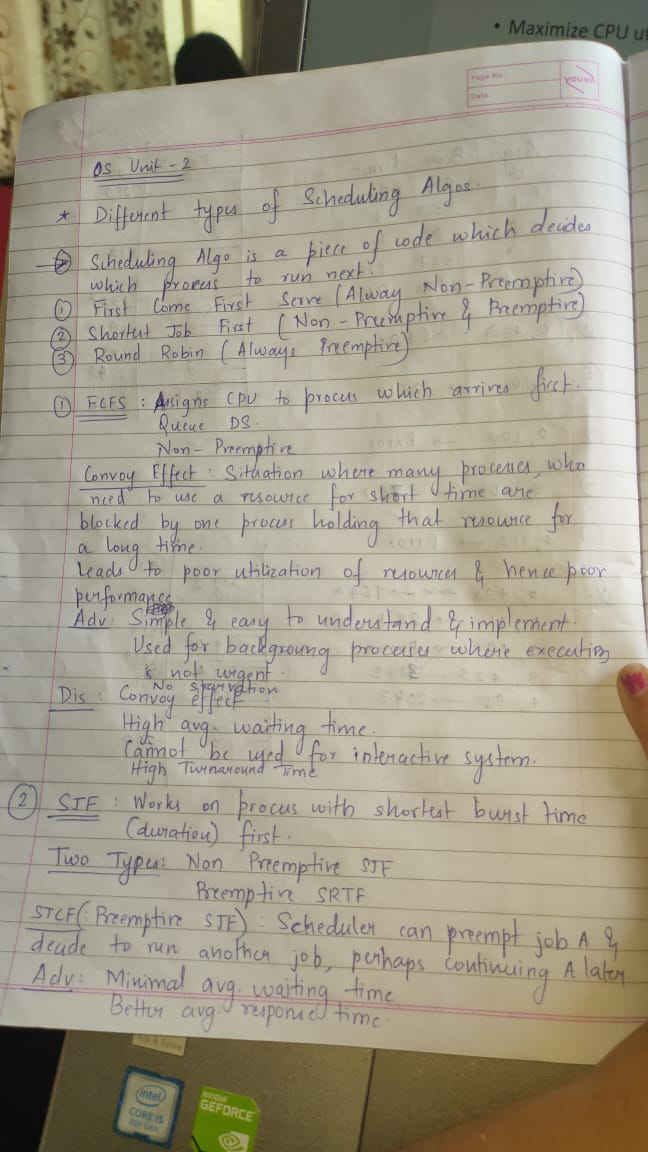 • Maximize CPU ut
Page No.
Date
YOUVA
OS Unit - 2
* Different types of Scheduling Algos.
Scheduling Algo is a piece of code which decides
which process to run next.
① First Come First Serve (Alway Non-Preemptive)
② Shortest Job First (Non-Preemptive & Preemptive)
③ Round Robin (Always Preemptive)
① FCFS : Assigns CPU to process which arrives first.
Queue DS.
Non-Preemptive
Convoy Effect : Situation where many processes, who
need to use a resource for short time are
blocked by one process holding that resource for
a long time.
Leads to poor utilization of resources & hence poor
performance
Adv: Simple & easy to understand & implement.
Used for backgroung processes where execution
is not urgent.
No starvation
Dis : Convoy effect
High avg. waiting time.
Cannot be used for interactive system.
High Turnaround Time
② SJF : Works on process with shortest burst time
(duration) first.
Two Types: Non Preemptive SJF
Preemptive SRTF
STCF (Preemptive SJF) : Scheduler can preempt job A &
decide to run another job, perhaps continuing A later
Adv: Minimal avg. waiting time
Better avg. response time.
Ask & Solve
intel
CORE i5
8th Gen
NVIDIA
GEFORCE